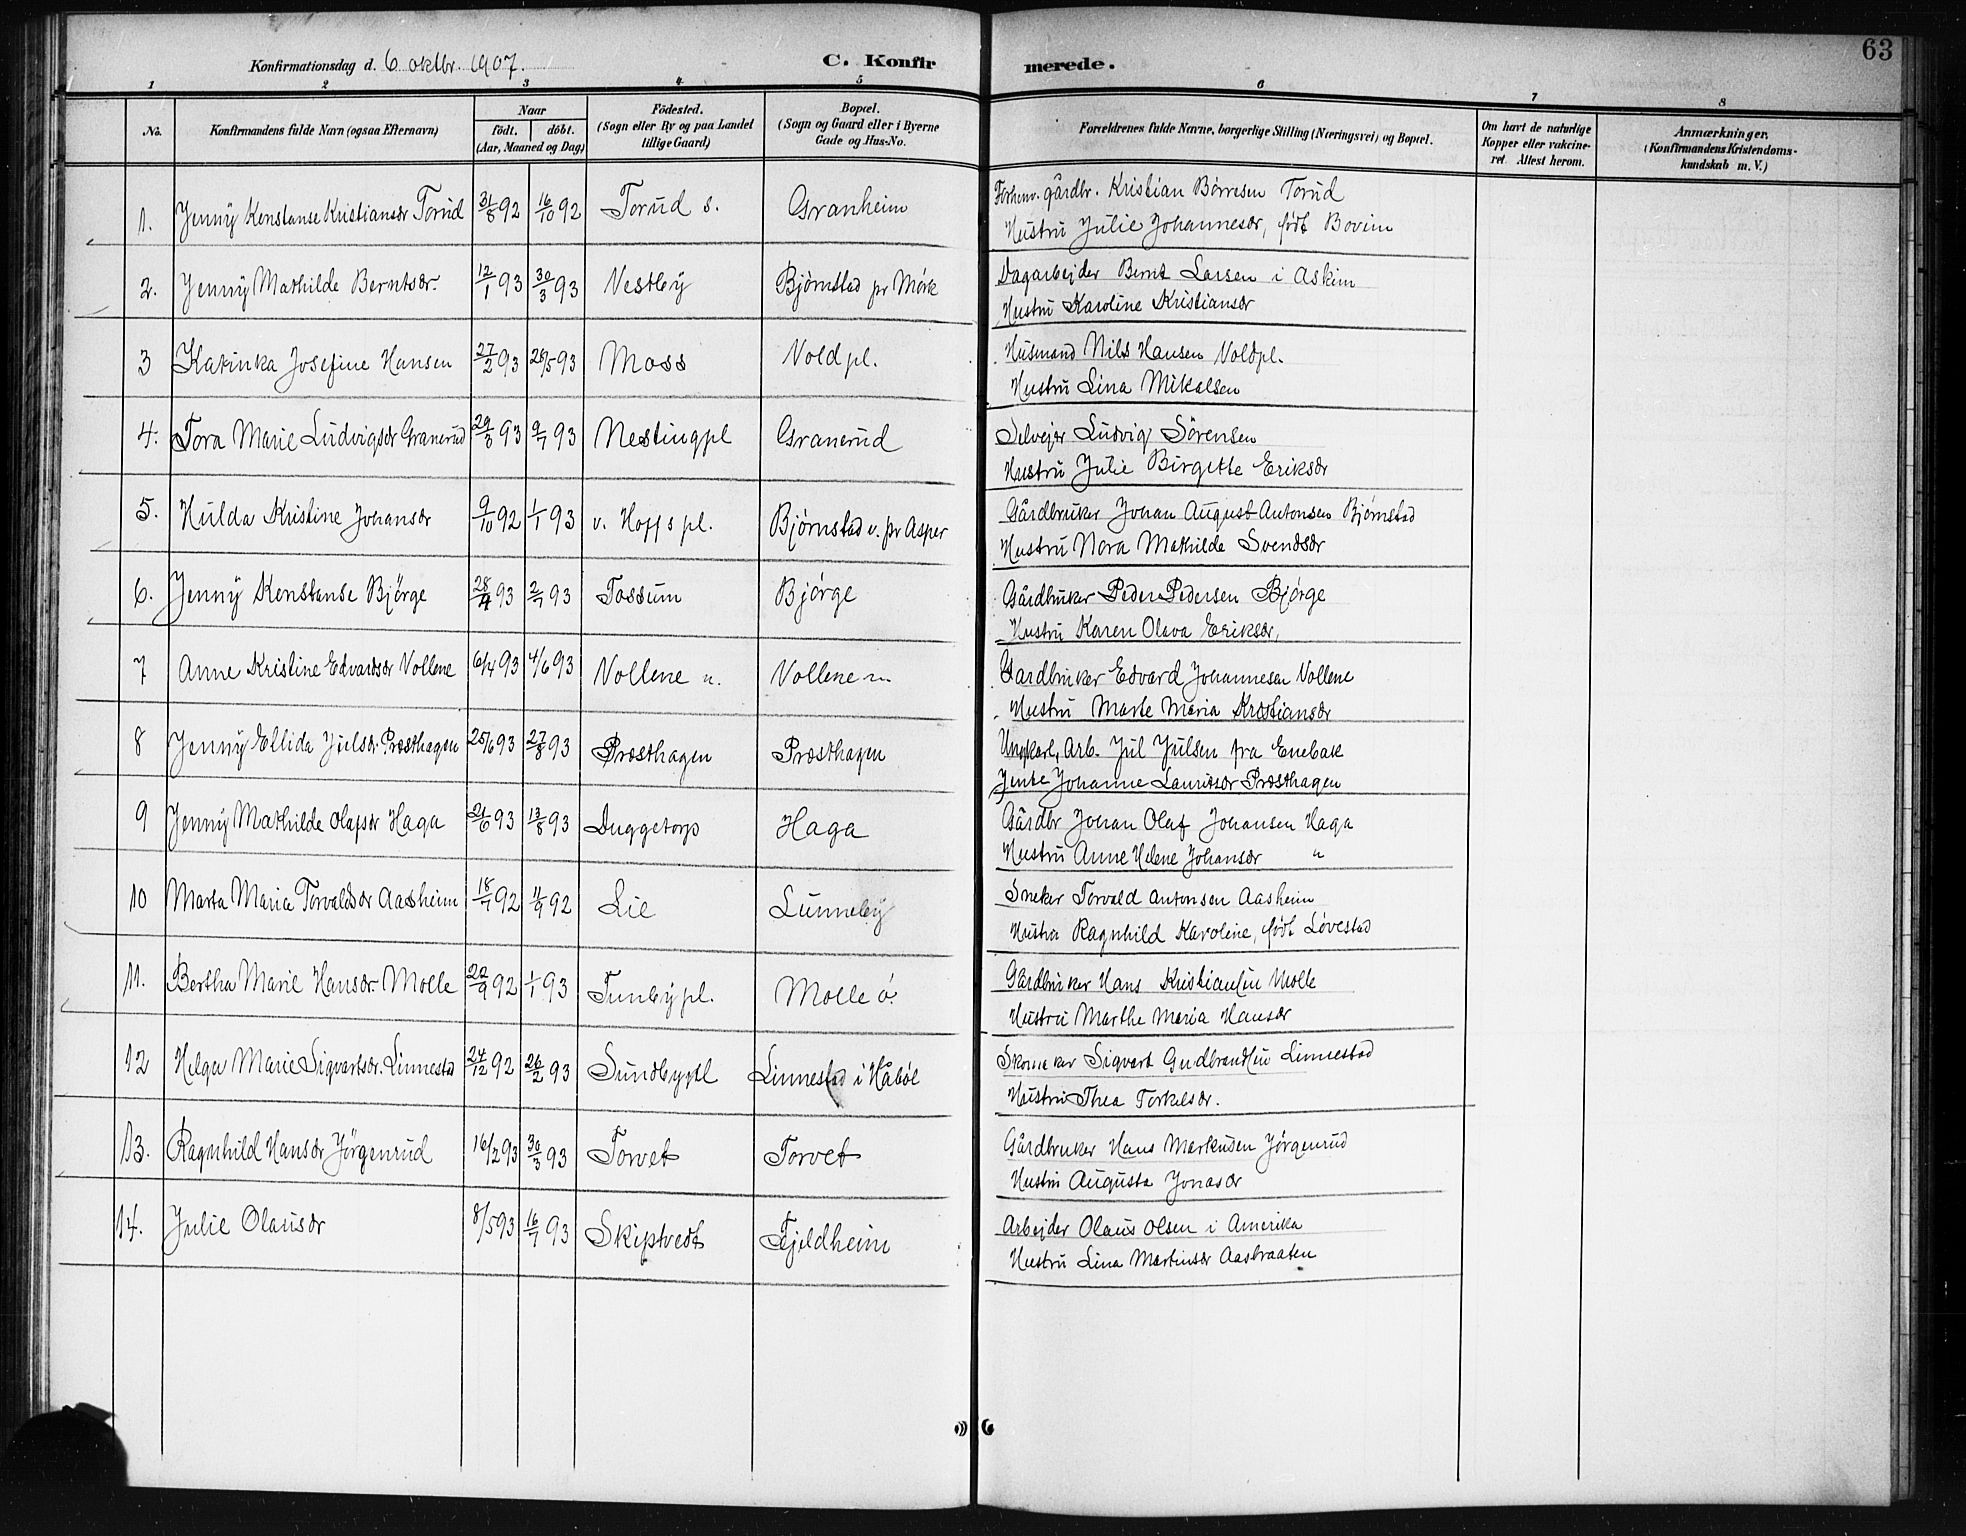 63
Konfirmationsdag d. 6 oktbr. 1907. C. Konfirmerede.
1 2 3 4 5 6 7 8
No. Konfirmandens fulde Navn (ogsaa Efternavn) Naar födt. döbt. (Aar, Maaned og Dag) Födested. (Sogn eller By og paa Landet tillige Gaard) Bopæl. (Sogn og Gaard eller i Byerne Gade og Hus-No. Forældrenes fulde Navne, borgerlige Stilling (Næringsvei) og Bopæl. Om havt de naturlige Kopper eller vakcineret. Attest herom. Anmærkninger, (Konfirmandens Kristendomskundskab m. V.)
1. Jenny Konstanse Kristiansdr Torud 31/8 92 16/10 92 Torud s. Granheim Forhenv. gårdbr. Kristian Børresen Torud
Hustru Julie Johannesdr, født Bovim
2. Jenny Mathilde Berntsdr. 12/1 93 30/3 93 Vestby Bjørnstad pr Mørk Dagarbejder Bernt Larsen i Askim
Hustru Karoline Kristiansdr
3 Katinka Josefine Hansen 27/2 93 28/5 93 Moss Vold pl. Husmand Nils Hansen Voldpl.
Hustru Lina Mikalsen
4. Tora Marie Ludvigsdr Granerud 29/3 93 9/7 93 Nestingpl Granerud Selvejer Ludvig Sörensen
Hustru Julie Birgitte Eriksdr
5. Hulda Kristine Johansdr 9/10 92 1/1 93 v. Hoffs pl. Bjørnstad v. pr Asper Gårdbruker Johan August Antonsen Bjørnstad
Hustru Nora Mathilde Svendsdr
6. Jenny Konstanse Bjørge 28/4 93 2/7 93 Tossum Bjørge Gårdbruker Peder Pedersen Bjørge
Hustru Karen Olava Eriksdr,
7 Anne Kristine Edvardsdr Vollene 6/4 93 4/6 93 Vollene n. Vollene n. Gardbruker Edvard Johannesen Vollene
Hustru Marte Maria Kristiansdr
8 Jenny Ellida Julsdr. Præsthagen 25/6 93 27/8 93 Præsthagen Præsthagen Ungkarl, Arb. Jul Julsen fra Enebak
Jente Johanne Lauritsdr Præsthagen
9 Jenny Mathilde Olafsdr Haga 21/6 93 13/8 93 Duggetorp Haga Gårdbr Johan Olaf Johansen Haga
Hustru Anne Helene Johansdr "
10 Marta Maria Torvaldsdr Aasheim 18/7 92 4/9 92 Lie Lunneby Sneker Torvald Antonsen Aasheim
Hustru Ragnhild Karoline, født Løvestad
11. Bertha Marie Hansdr Molle 22/9 92 1/1 93 Tunby pl. Molle ö. Gårdbruker Hans Kristiansen Molle
Hustru Marthe Maria Hansdr
12 Helga Marie Sigvartsdr. Linnestad 24/12 92 26/2 93 Sundbypl Linnestad i Håbøl Skomaker Sigvart Gudbrandsen Linnestad
Hustru Thea Torkelsdr.
13. Ragnhild Hansdr Jørgenrud 16/2 93 30/3 93 Torvet Torvet Gårdbruker Hans Markusen Jørgenrud
Hustru Augusta Jonasdr
14. Julie Olausdr 8/5 93 16/7 93 Skiptvedt Fjeldheim Arbejder Olaus Olsen i Amerika
Hustru Lina Martinsdr Aasbraaten